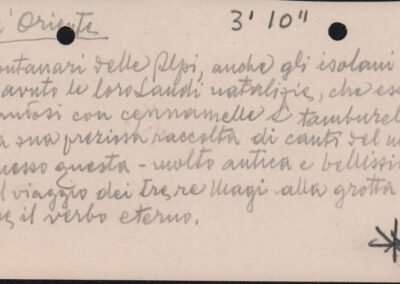 l'Oriente 3' 10"
ontanari delle Alpi, anche gli isolani
avuto le loro Laudi natalizie, che es
andosi con cennamelle e tamburel
a sua preziosa raccolta di canti del m
messo questa - molto antica e bellissi
l viaggio dei tre re Magi alla grotta
il verbo eterno.